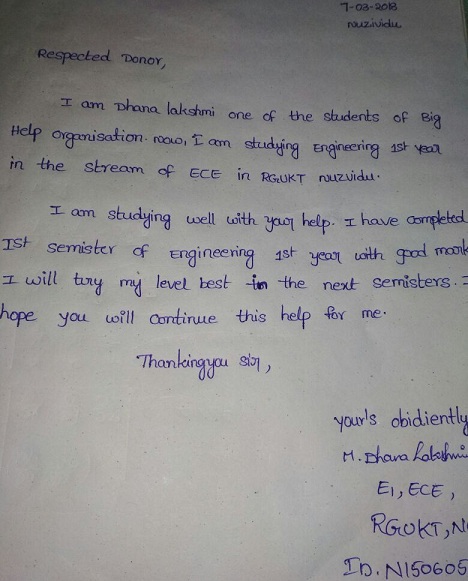 7-03-2018
nuzividu
Respected Donor,
I am Dhana lakshmi one of the students of Big
Help organisation. now, I am studying Engineering 1st year
in the stream of ECE in RGUKT nuzvidu.
I am studying well with your help. I have completed
Ist semister of Engineering 1st year with good mark
I will try my level best in the next semisters. I
hope you will continue this help for me.
Thankingyou sir,
your's obidiently
M. Dhana Lakshmi
E1, ECE,
RGUKT, N
ID. N150605